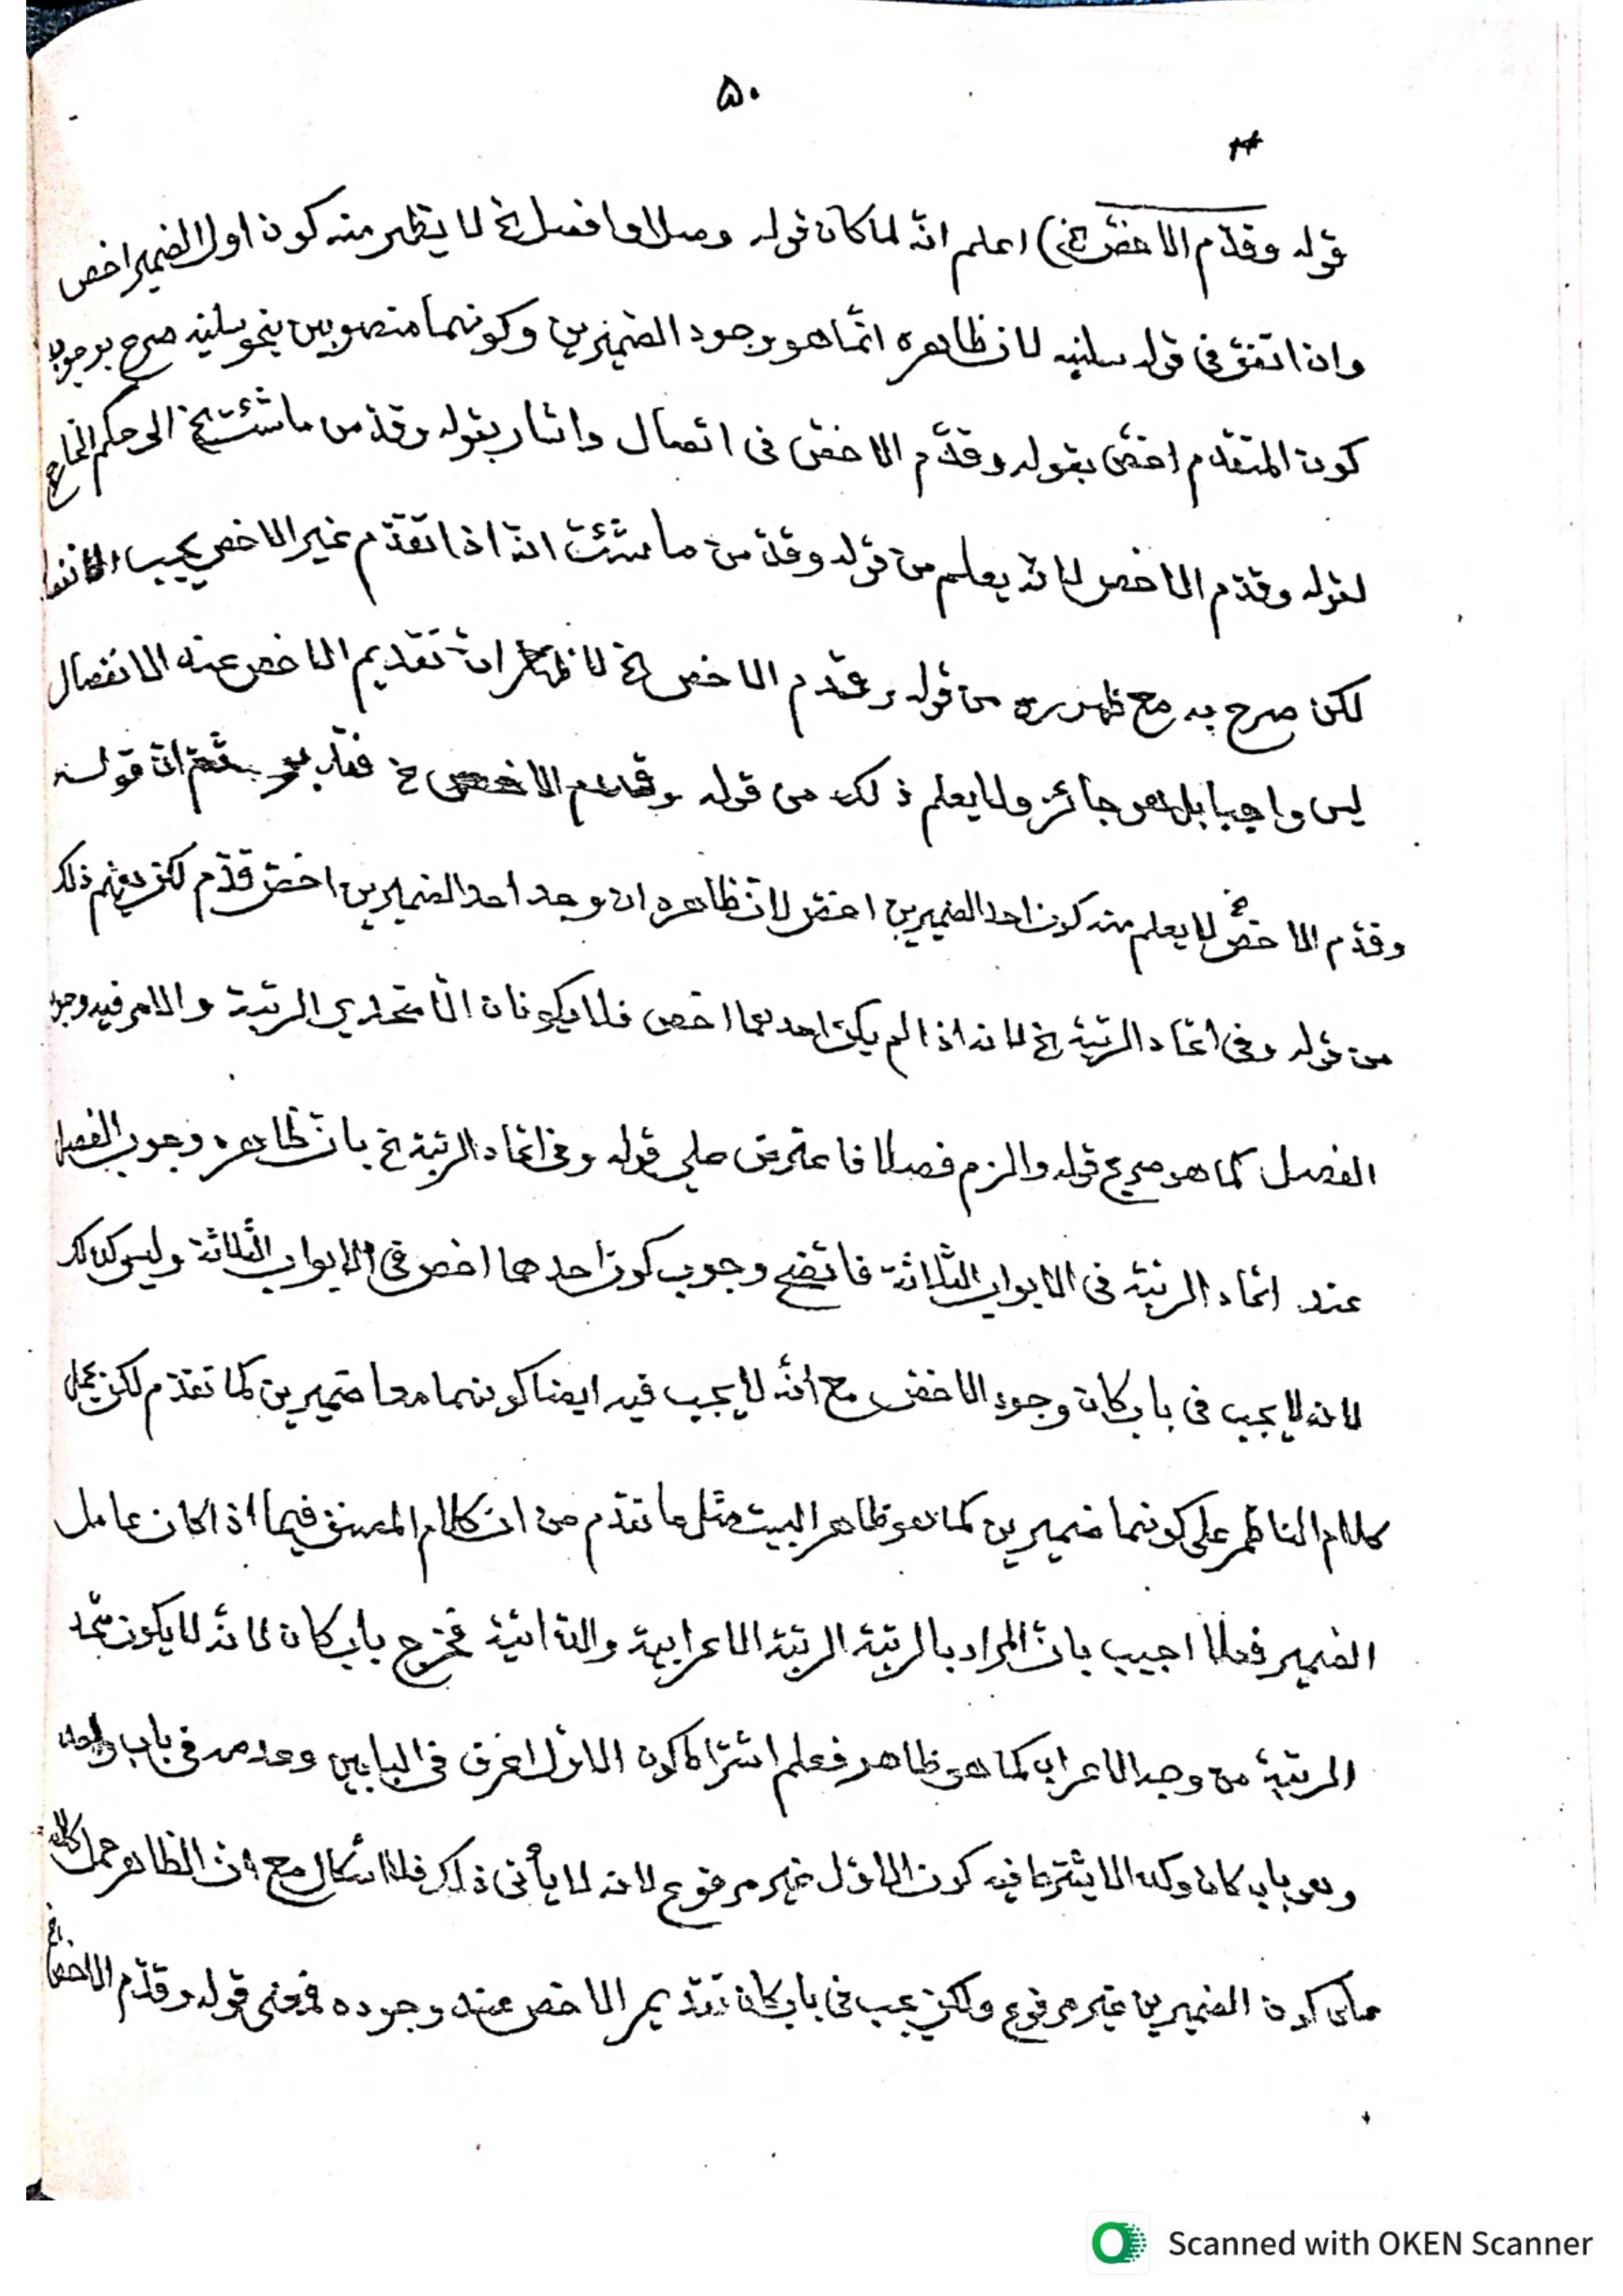 ۵۰
قوله وقدّم الاخصّ الخ) اعلم انّه لما كان قوله وصل او افصل الخ لا يظهر منه كون اول الضمير اخص
وان اتفق فى قوله سلنيه لان ظاهره انّما هو وجود الضميرين وكونهما منصوبين بنحو سلنيه صرح بوجوب
كون المتقدّم اخصّ بقوله وقدّم الاخصّ فى اتصال واشار بقوله وقدّمن ما شئت الخ الى حكم الخارج
لقوله وقدّم الاخص لانّه يعلم من قوله وقدّمن ما شئت انّه اذا تقدّم غير الاخص يجب
لكن صرح به مع ظهوره من قوله وقدّم الاخص الخ ان تقديم الاخص عند الانفصال
ليس واجبا بل هو جائز ولا يعلم ذلك من قوله وقدّم الاخص الخ ثمّ انّ قوله
وقدّم الاخصّ الخ لا يعلم منه كون احد الضميرين اخصّ لانّ ظاهره ان وجد احد الضميرين اخصّ قدّم لكن يفهم ذلك
من قوله وفى اتّحاد الرتبة الخ لانه اذا لم يكن احدهما اخص فلا يكونان الّا متحدي الرتبة والامر فيه وجوب
الفصل كما هو صريح قوله والزم فصلا فاعترض على قوله وفى اتّحاد الرتبة الخ بانّ ظاهره وجوب الفصل
عند اتّحاد الرتبة فى الابواب الثّلاثة فاتّضح وجوب كون احدهما اخص فى الابواب الثّلاثة وليس كذلك
لانه لا يجب فى باب كان وجود الاخصّ مع انّه لا يجب فيه ايضا كونهما معا ضميرين كما تقدّم لكن يحمل
كلام الناظم على كونهما ضميرين كما هو ظاهر البيت مثل ما تقدّم من ان كلام المصنف فيما اذا كان عامل
الضمير فعلا اجيب بانّ المراد بالرتبة الرتبة الاعرابية والذاتيّة فخرج باب كان لانّه لا يكون متّحد
الرتبة من وجه الاعراب كما هو ظاهر فعلم اشتراط كون الاوّل اعرف فى البابين وعدمه فى باب واحد
وهو باب كان وكذا لا يشترط فيه كون الاوّل غير مرفوع لانه لا يأتى ذلك فلا اشكال مع انّ الظاهر حمل كلامه
على كون الضميرين غير مرفوع ولكن يجب فى باب كان تقديم الاخص عند وجوده فمعنى قوله وقدّم الاخصّ الخ
Scanned with OKEN Scanner